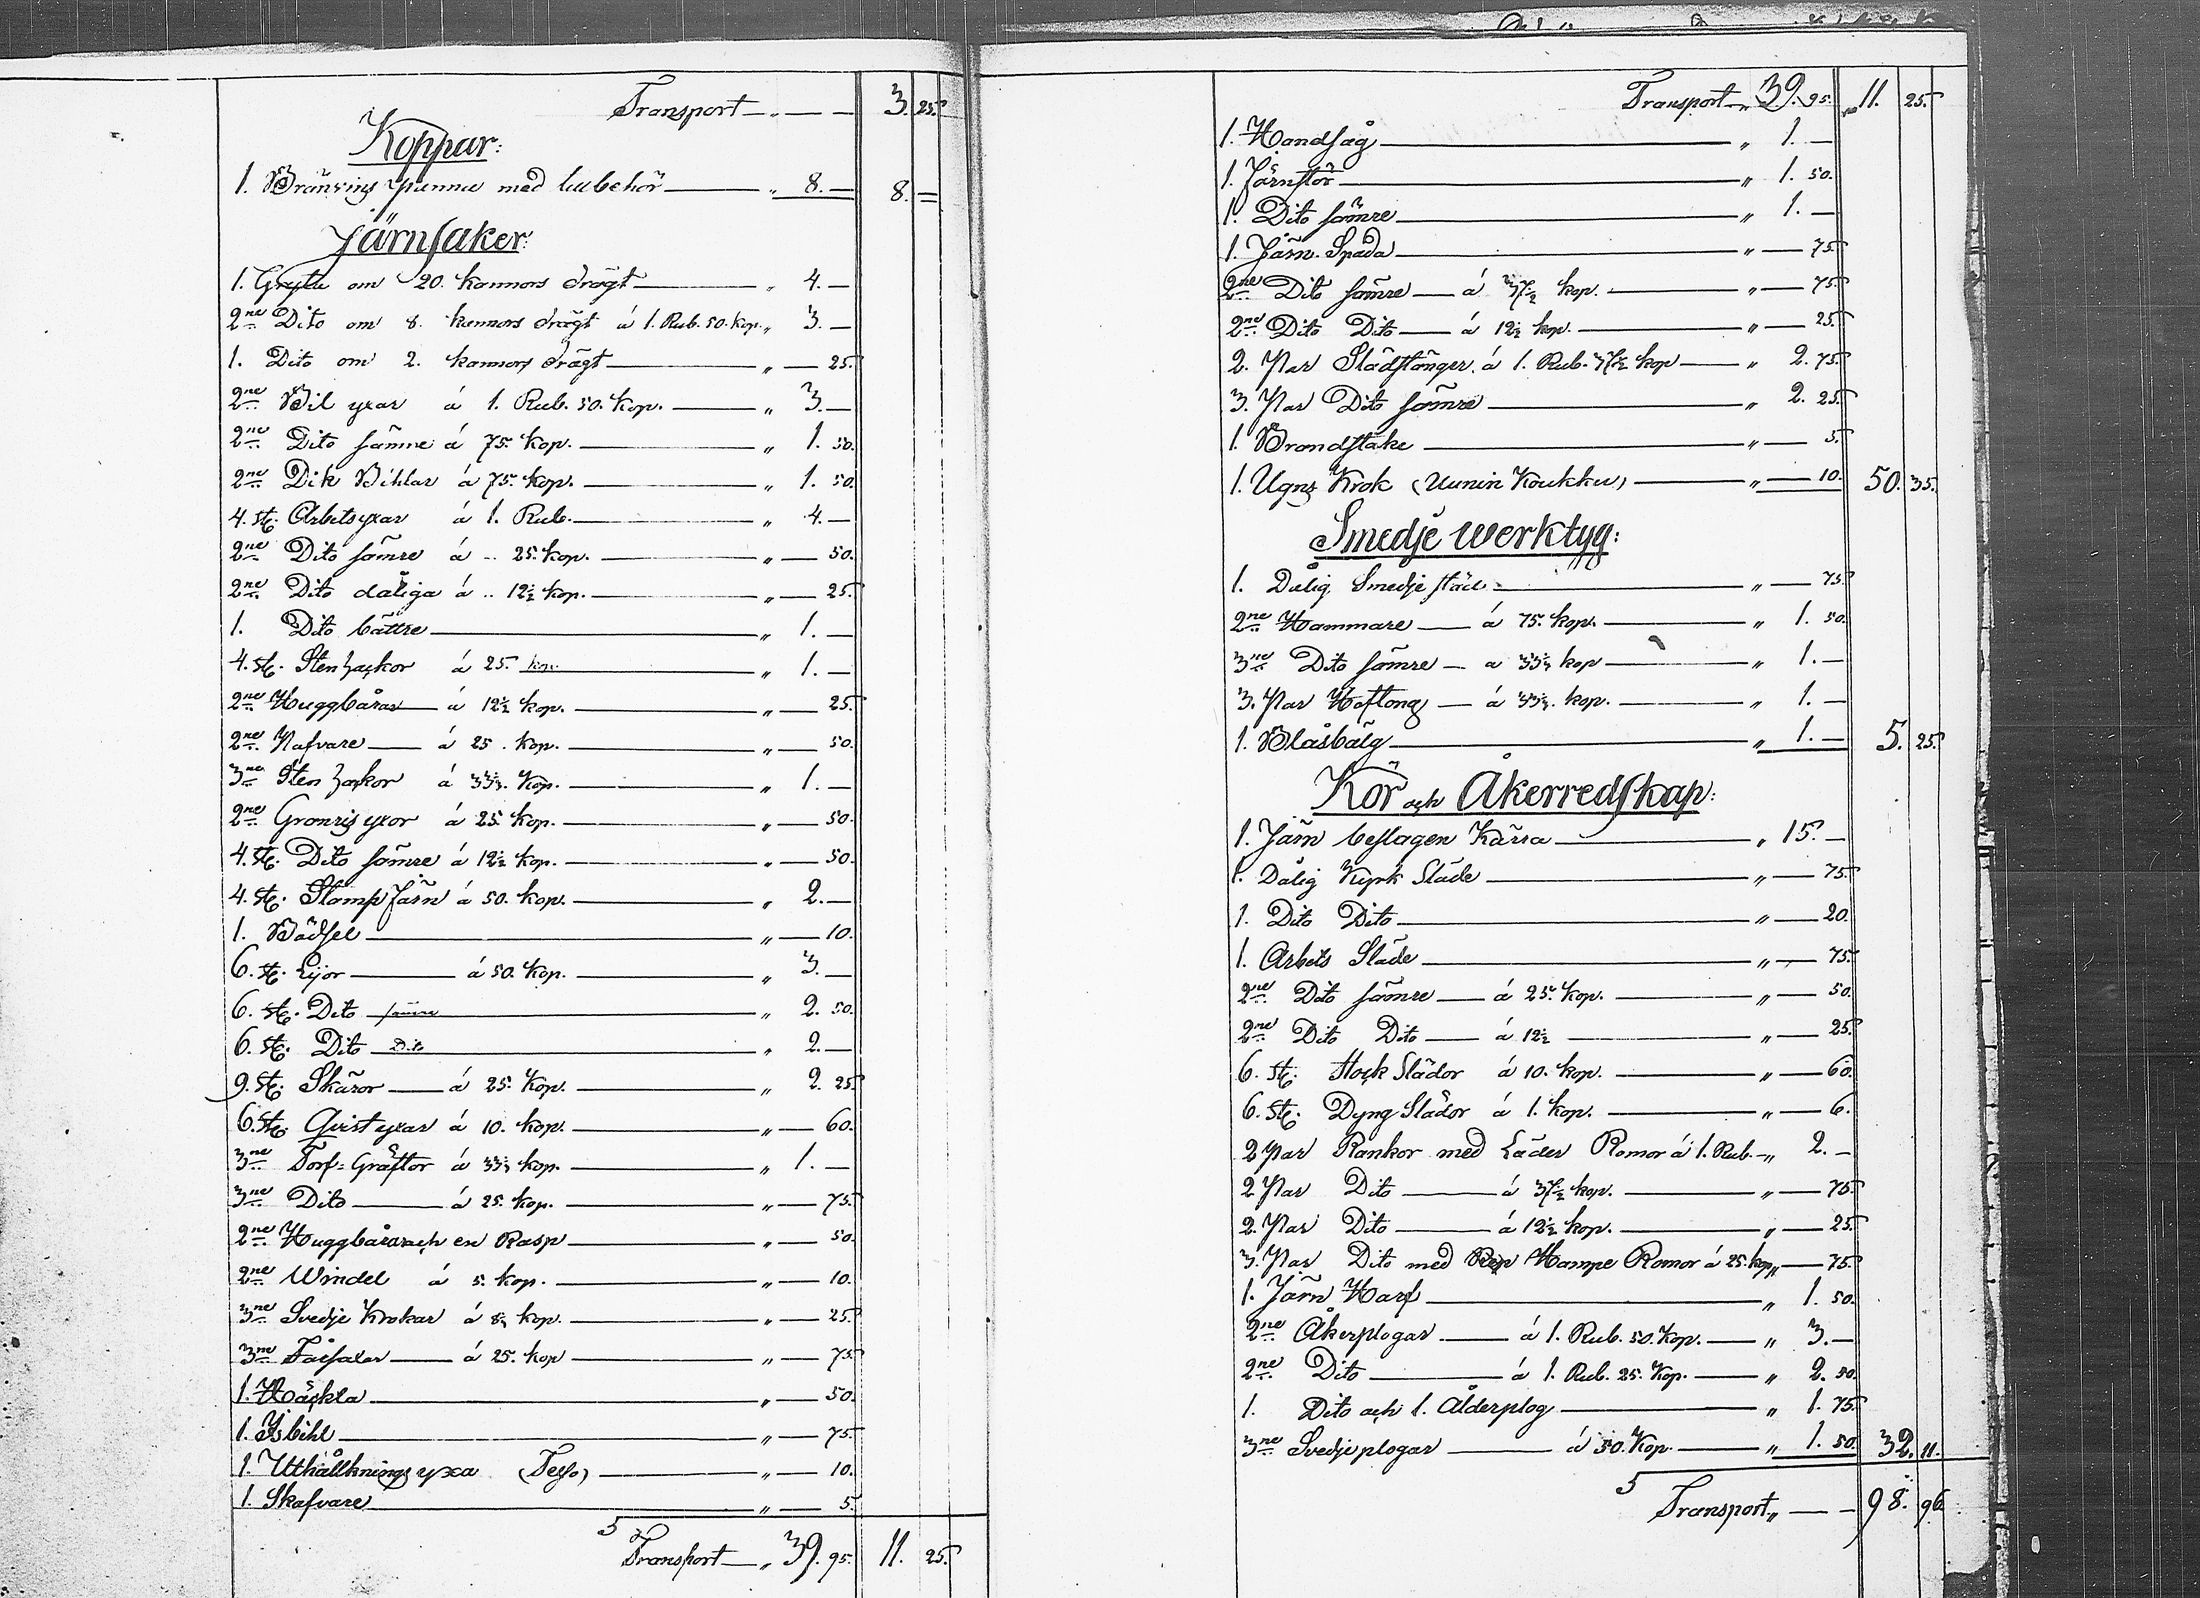 Transport — " — — 3. 25.
Koppar:
1. Bränvins panna med tillbehör — " 8. — 8. =
Järnsaker:
1. Gryta om 20. kannors drägt — " 4. —
2ne Dito om 8. kannors drägt á 1. Rub. 50. Kop. " 3. —
1. Dito om 2. kannors drägt — " — 25.
2ne Bil yxar á 1. Rub. 50. Kop. — " 3. —
2ne Dito sämre á 75. Kop. — " 1. 50.
2ne Dik Bihlar á 75. Kop. — " 1. 50.
4. st. Arbetsyxar á 1. Rub. — " 4. —
2ne Dito sämre á .. 25. Kop. — " — 50.
2ne Dito dåliga á .. 12½ Kop. — " — 25.
1. Dito bättre — " 1. —
4. st. Stenhackor á 25. kop. — " 1. —
2ne Huggbårar — á 12½ kop. — " — 25.
2ne Nafvare — á 25. Kop. — " — 50.
3ne Stenhackor á 33⅓. Kop. — " 1. —
2ne Granris yxor á 25. Kop. — " — 50.
4. st. Dito sämre á 12½ Kop. — " — 50.
4. st. StampJärn á 50. Kop. — " 2. —
1. Bådsel — " — 10.
6. st. Lijor — á 50. Kop. — " 3. —
6. st. Dito sämre — " 2. 50.
6. st. Dito Dito — " 2. —
9. st. Skäror — á 25. Kop. — " 2. 25.
6. st. Qvist yxar á 10. Kop. — " — 60.
3ne Torf=Gräftor á 33⅓ Kop. — " 1. —
3ne Dito — á 25. Kop. — " — 75.
2ne Huggbårar och en Rasp — " — 50.
2ne Windel á 5. Kop. — " — 10.
3ne Svedje Krokar á 8⅓ Kop. — " — 25.
3ne Fårsaxar — á 25. Kop — " — 75.
1. Häckla — " — 50.
1. Isbihl — " — 75.
1. Uthållknings yxa — " — 10.
1. Skafvare — " — 5.
5 Transport — " 39. 95. 11. 25.
Transport " 39. 95. " 11. 25.
1. Handsåg — " 1. —
1. Järnstör — " 1. 50.
1. Dito sämre — " 1. —
1. Järn Spada — " — 75.
2ne Dito sämre — á 37½ Kop. — " — 75.
2ne Dito Dito — á 12½ kop. — " — 25.
2. Par Slädstänger á 1. Rub. 37½ kop — " 2. 75.
3. Par Dito sämre — " 2. 25.
1. Brandstake — " — 5.
1. Ugns Krok (Uunin Koukku) — " — 10. 50. 35.
Smedje werktyg:
1. Dålig Smedje städ — " — 75.
2ne Hammare — á 75. Kop. — " 1. 50.
3ne Dito sämre — á 33⅓ kop — " 1. —
3. Par Hoftong — á 33⅓. kop. — " 1. —
1. Blåsbälg — " 1. — 5. 25.
Kör och Åkerredskap:
1. Järn beslagen Kärra — " 15. —
1. Dålig Kyrk Släde — " — 75.
1. Dito Dito — " — 20.
1. Arbets Släde — " — 75.
2ne Dito sämre — á 25. Kop. — " — 50.
2ne Dito Dito — á 12½ — " — 25.
6. st. Stock Slädor á 10. Kop. — " — 60.
6. st. Dyng Slädor á 1. Kop. — " — 6.
2 Par Rankor med Läder Romor á 1. Rub. — " 2. —
2 Par Dito — á 37½ kop. — " — 75.
2. Par Dito — á 12½ kop. — " — 25.
3. Par Dito med Hampe Romor á 25. Kop. " — 75.
1. Järn Harf — " 1. 50.
2ne Åkerplogar — á 1. Rub. 50. Kop. — " 3. —
2ne Dito — á 1. Rub. 25. Kop. — " 2. 50.
1. Dito och 1. Ålderplog — " 1. 75.
3ne Svedjeplogar — á 50. Kop. — " 1. 50. 32. 11.
5 Transport " — — 98. 96